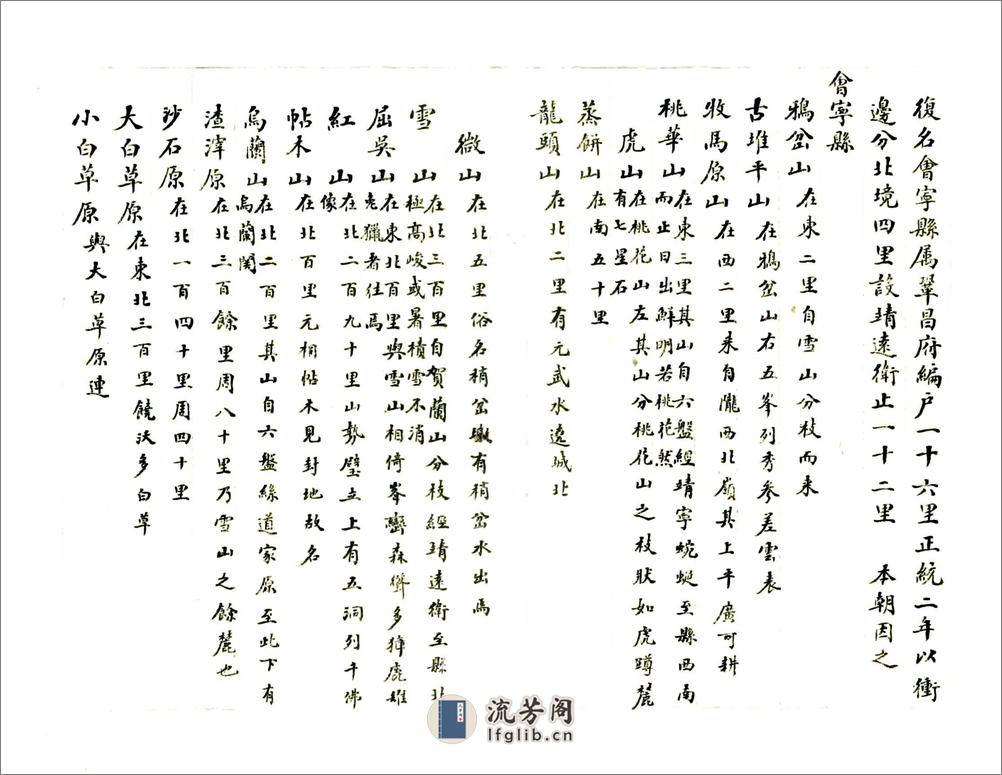 復名會寧縣属鞏昌府編户一十六里正統二年以衝
邊分北境四里設靖遠衛止一十二里　本朝因之
會寧縣
鴉岔山在東二里自雪山分枝而来
古堆平山在鴉岔山右五峯列秀參差雲表
牧馬原山在西二里来自隴西北嶺其上平廣可耕
桃華山在東三里其山自六盤經靖寧蜿蜒至縣西南
而止日出鮮明若桃花然
虎山在桃花山左其山分桃花山之枝狀如虎蹲麓
有七星石
蒸餅山在南五十里
龍頭山在北二里有元武水遶城北
微山在北五里俗名稍岔有稍岔水出焉
雪山在北三百里自賀蘭山分枝經靖遠衛至縣北
極高峻或暑積雪不消
屈吳山在東北百里與雪山相倚峯巒森聳多獐鹿雉
兎獵者往焉
紅山在北二百九十里山勢壁立上有五洞列千佛
像
帖木山在北百里元相帖木見封地故名
烏蘭山在北二百里其山自六盤絲道家原至此下有
烏蘭関
渣滓原在北三百餘里周八十里乃雪山之餘麓也
沙石原在北一百四十里周四十里
大白草原在東北三百里饒沃多白草
小白草原與大白草原連
流芳阁
lfglib.cn